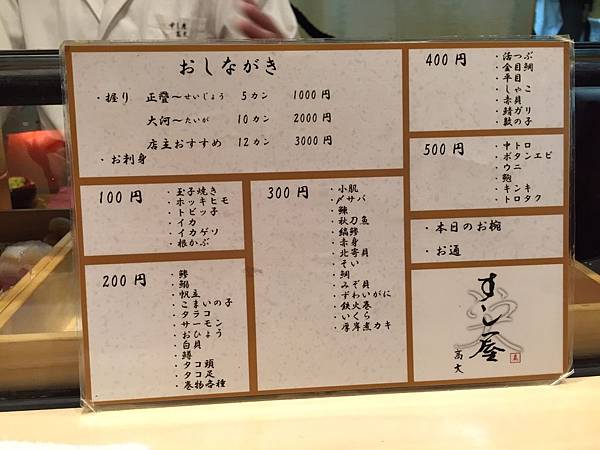 おしながき
・握り 正鶯〜せいじょう 5カン 1000円
大河〜たいが 10カン 2000円
店主おすすめ 12カン 3000円
・お刺身
100円
・玉子焼き
・ホッキヒモ
・トビッ子
・イカ
・イカゲソ
・根かぶ
200円
・鯵
・鰯
・帆立
・こまいの子
・タラコ
・サーモン
・おひょう
・白貝
・鱒
・タコ頭
・タコ足
・巻物各種
300円
・小肌
・〆サバ
・鰊
・秋刀魚
・縞鯵
・赤身
・北寄貝
・そい
・鯛
・みぞ貝
・ずわいがに
・鉄火巻
・いくら
・厚岸煮カキ
400円
・活つぶ
・金目鯛
・平目
・しゃこ
・赤貝
・鯖ガリ
・数の子
500円
・中トロ
・ボタンエビ
・ウニ
・鮑
・キンキ
・トロタク
・本日のお椀
・お通
すし屋
高大